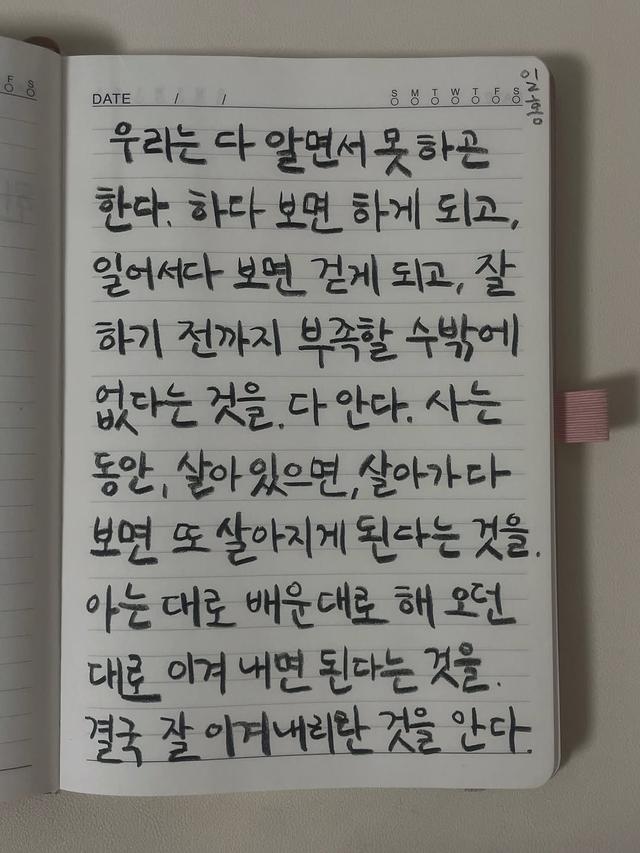 DATE / /
S M T W T F S
일홈
우리는 다 알면서 못 하곤
한다. 하다 보면 하게 되고,
일어서다 보면 걷게 되고, 잘
하기 전까지 부족할 수밖에
없다는 것을. 다 안다. 사는
동안, 살아 있으면, 살아가다
보면 또 살아지게 된다는 것을.
아는 대로 배운대로 해 오던
대로 이겨 내면 된다는 것을.
결국 잘 이겨내리란 것을 안다.